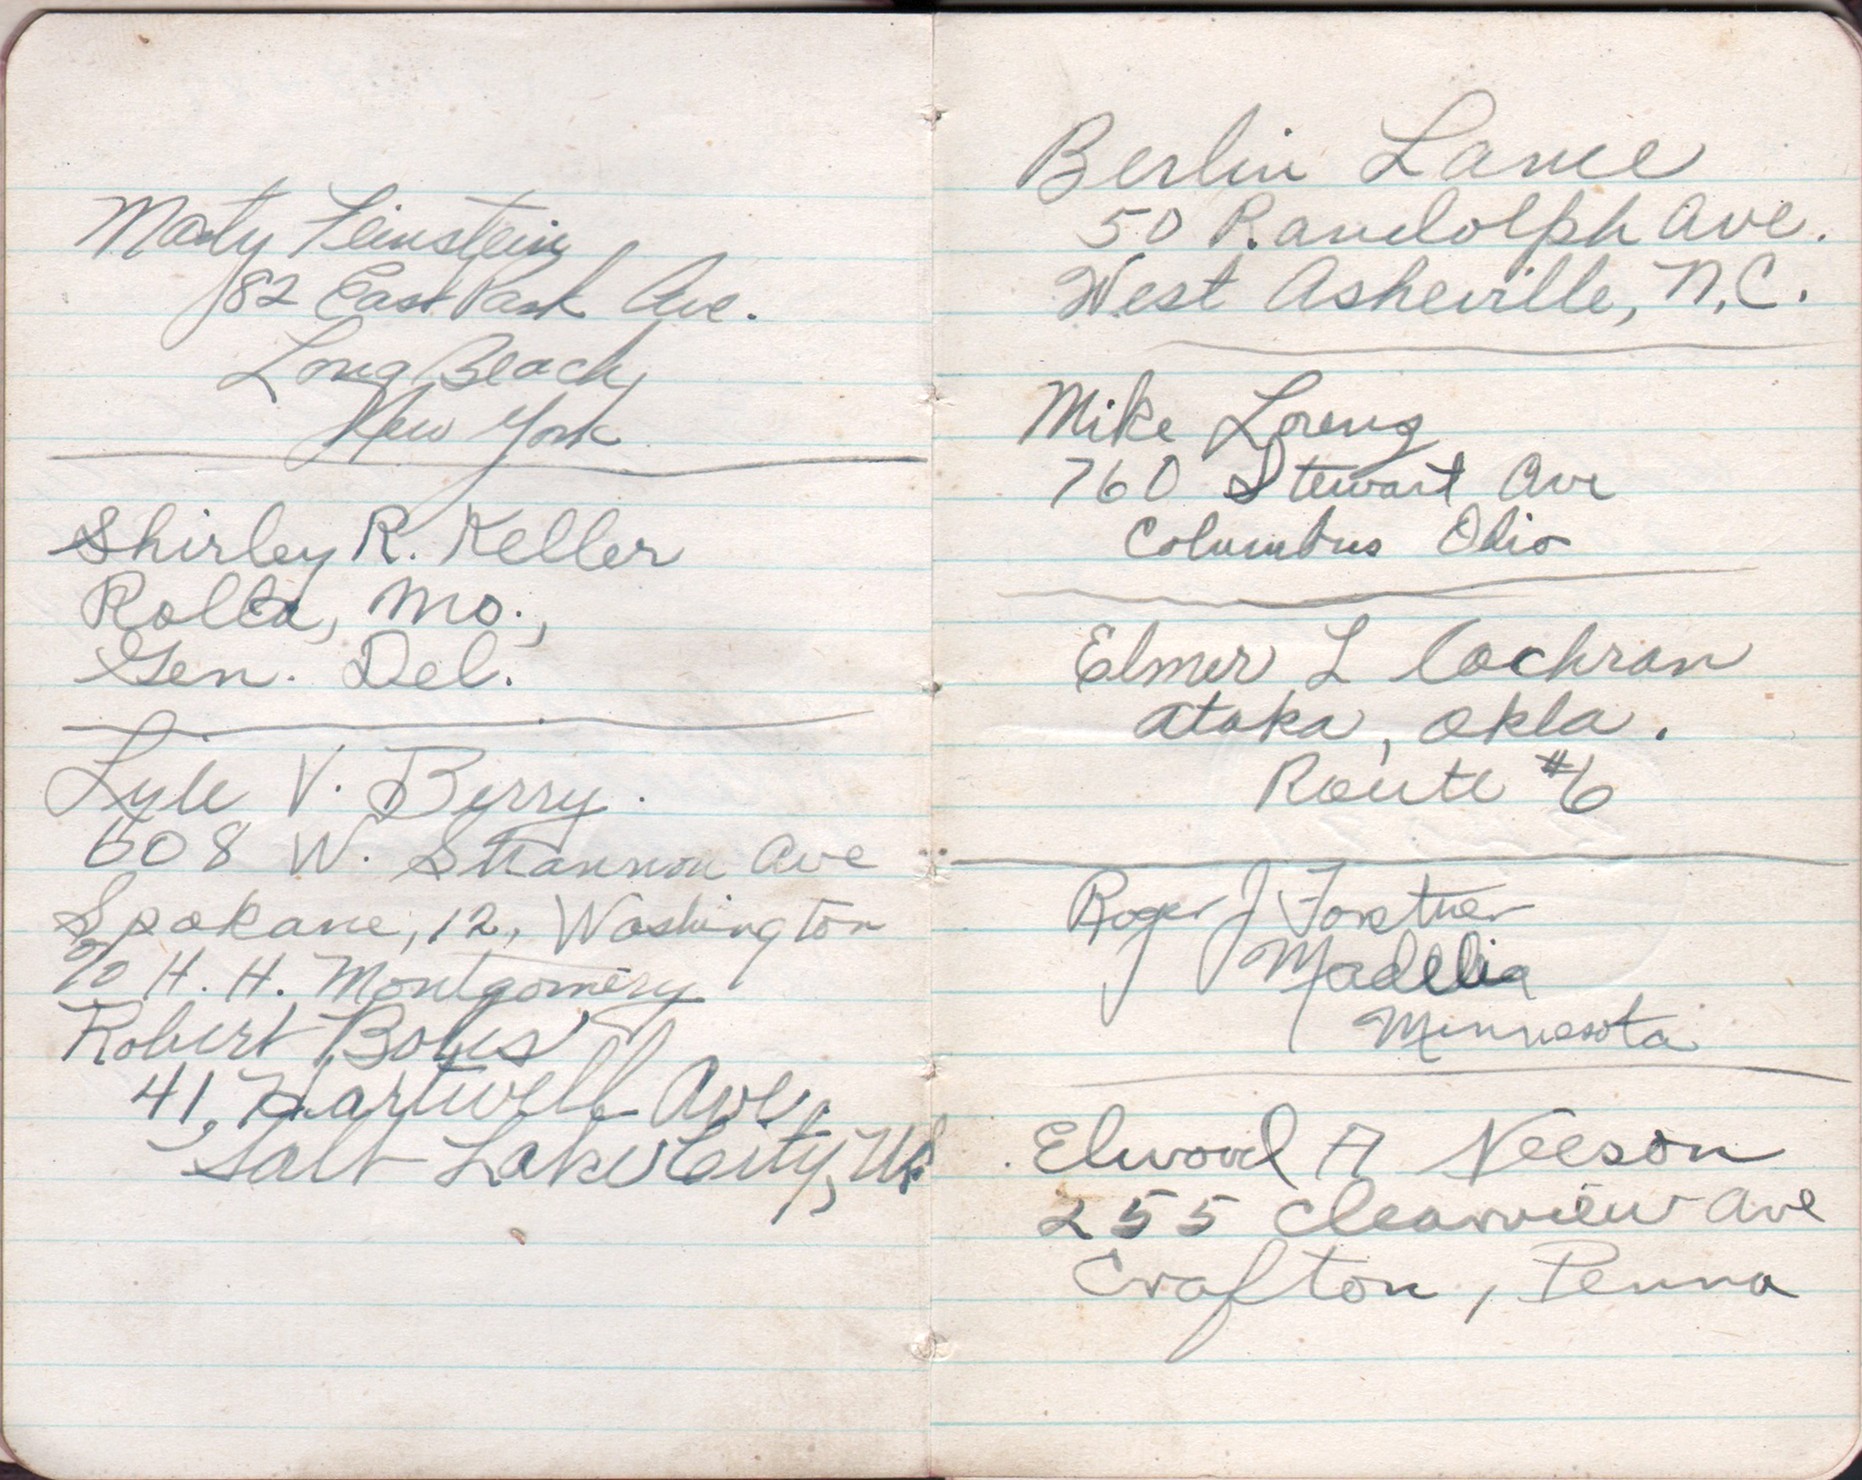 Marty Feinstein
82 East Park Ave.
Long Beach,
New York
Shirley R. Keller
Rolla, Mo.,
Gen. Del.
Lyle V. Berry.
608 W. Shannon Ave
Spokane, 12, Washington
c/o H. H. Montgomery
Robert
41, Hartwell Ave,
Salt Lake City, Ut
Berlin Lance
50 Randolph Ave.
West Asheville, N.C.
Mike Loreng
760 Stewart Ave
Columbus Ohio
Elmer L Cochran
Atoka, Okla.
Route #6
Roger J
Madelia
Minnesota
Elwood A Neeson
255 Clearview Ave
Crafton, Penna